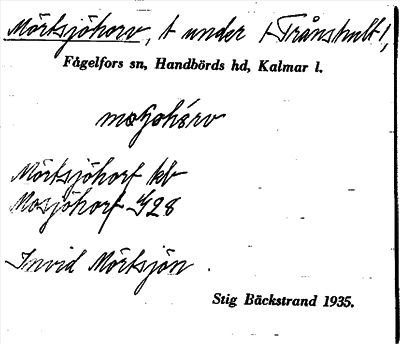 Mörtsjöhorv, t under Trånshult,
Fågelfors sn, Handbörds hd, Kalmar l.
Mörtsjöhorf kb
Mosjöhorf 28
Invid Mörtsjön
Stig Bäckstrand 1935.